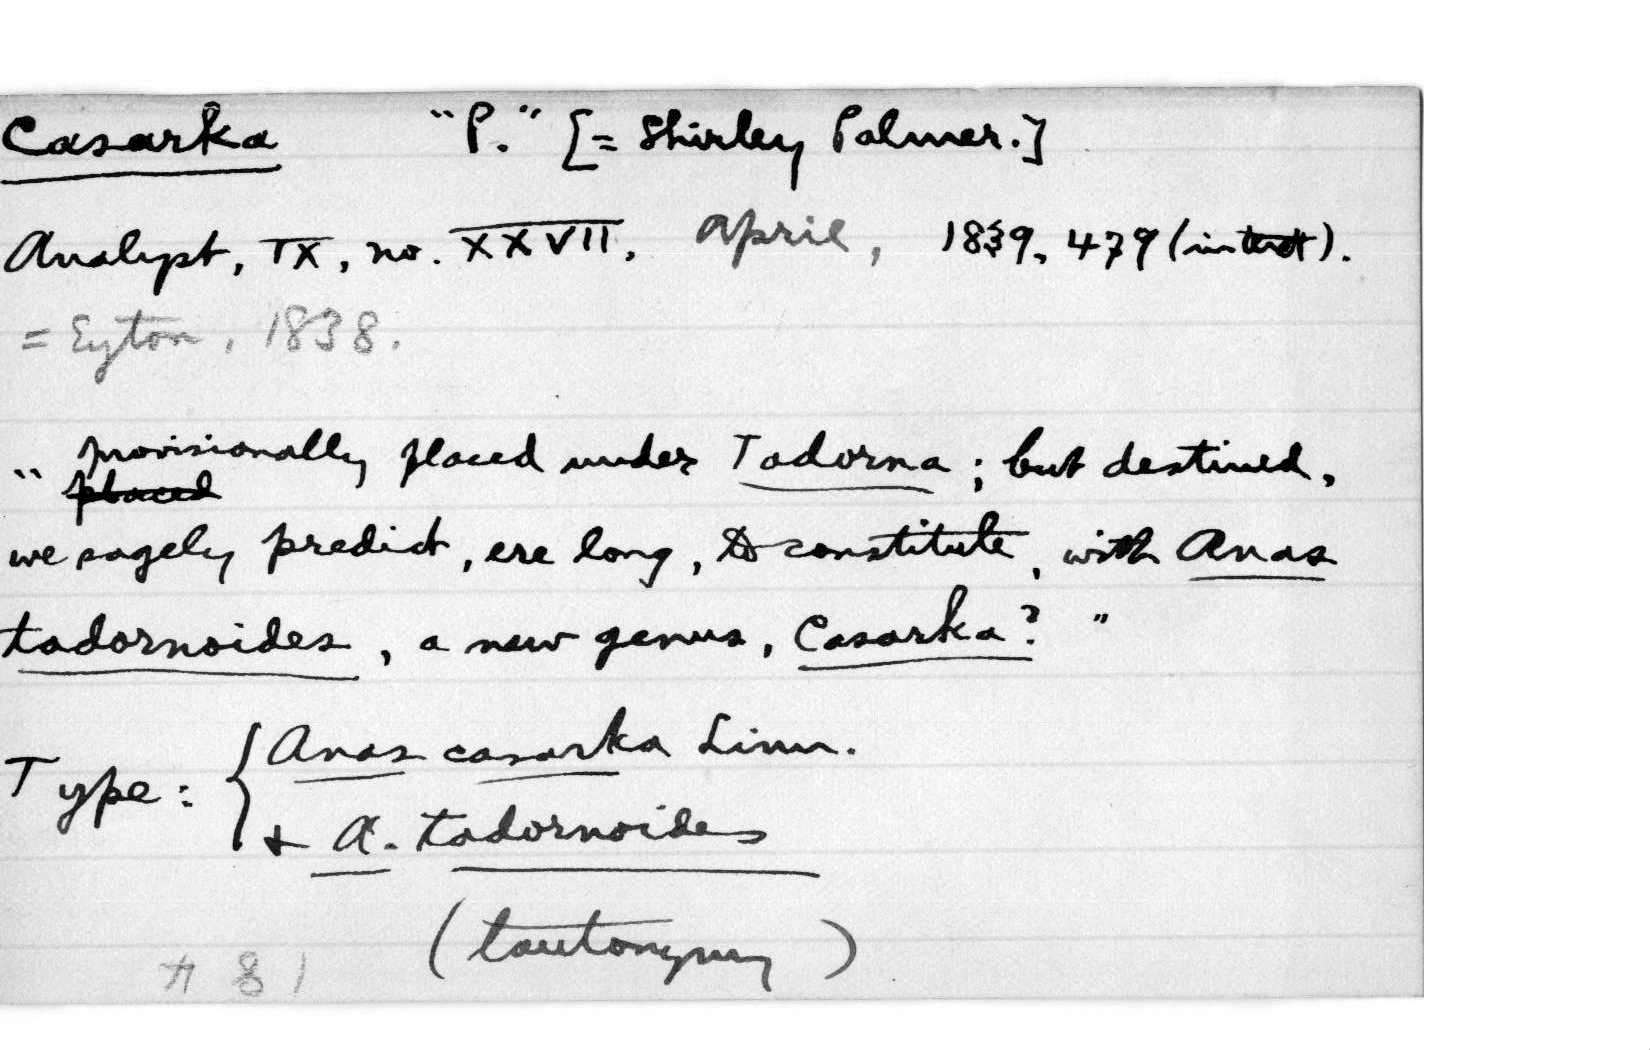 Casarka "P." [= Shirley Palmer.]
Analyst, IX, no. XXVII, April, 1839, 479 (in text).
= Eyton, 1838.
provisionally placed under Tadorna ; but destined,
" placed
we sagely predict, ere long, to constitute, with Anas
tadornoides, a new genus, Casarka? "
Type: { Anas casarka Linn.
+ A. tadornoides
(tautonymy)